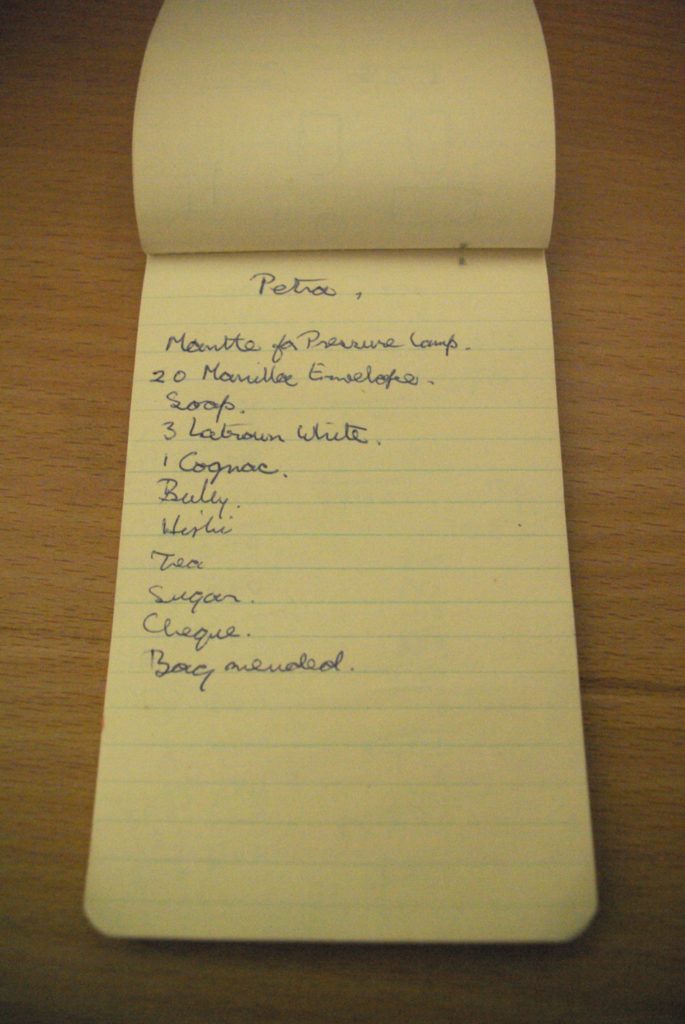 Petra,
Mantle for Pressure Lamp.
20 Manilla Envelopes.
Soap.
3 Latroun White.
1 Cognac.
Bully.
Tea
Sugar.
Cheque.
Bag mended.